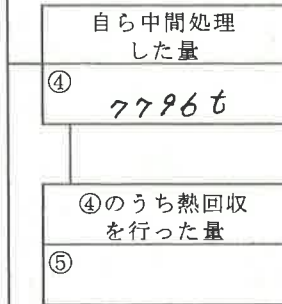 自ら中間処理
した量
④
7796t
④のうち熱回収
を行った量
⑤